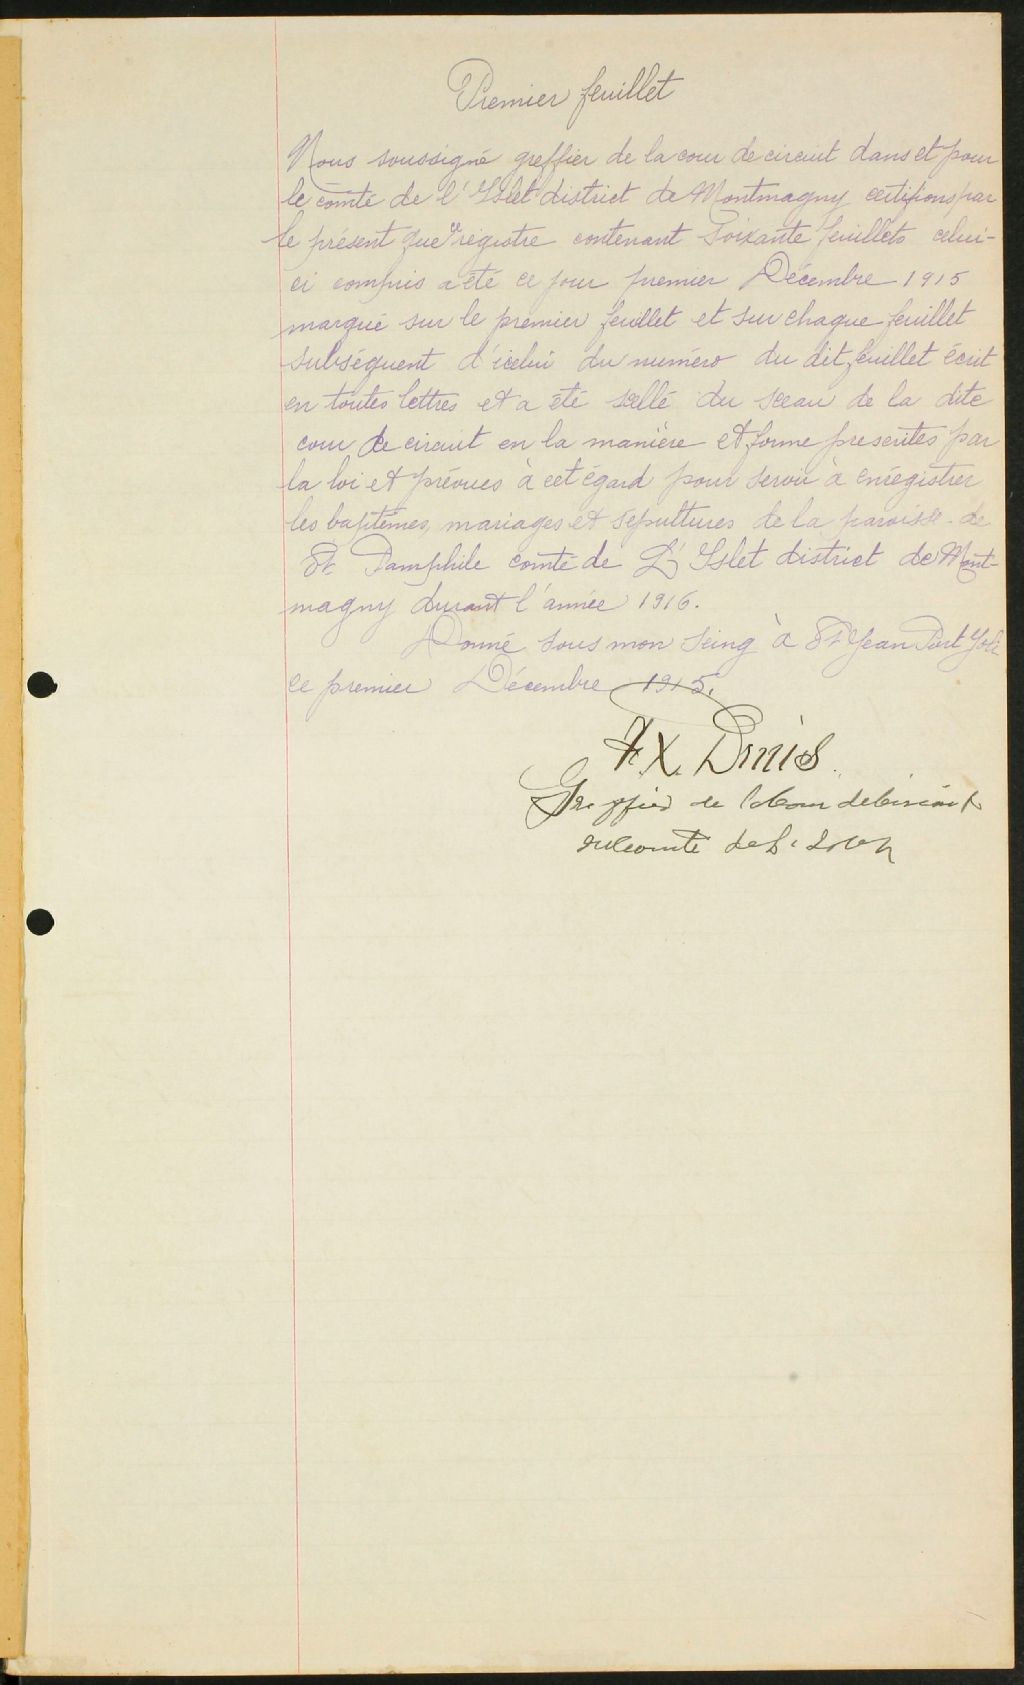 Premier feuillet
Nous soussigné greffier de la cour de circuit dans et pour
le comté de l'Islet district de Montmagny certifions par
le présent que ce régistre contenant soixante feuillets celui-
ci compris a été ce jour premier Décembre 1915
marqué sur le premier feuillet et sur chaque feuillet
subséquent d'icelui du numéro du dit feuillet écrit
en toutes lettres et a été scellé du sceau de la dite
cour de circuit en la manière et forme prescrites par
la loi et prévues à cet égard pour servir à enrégistrer
les baptêmes, mariages et sépultures de la paroisse de
St. Pamphile comté de L'Islet district de Mont-
magny durant l'année 1916.
Donné sous mon seing à St Jean Port Joli
ce premier Décembre 1915.
F. X. Dénis
Greffier de la Cour de Circuit
du comté de L'Islet